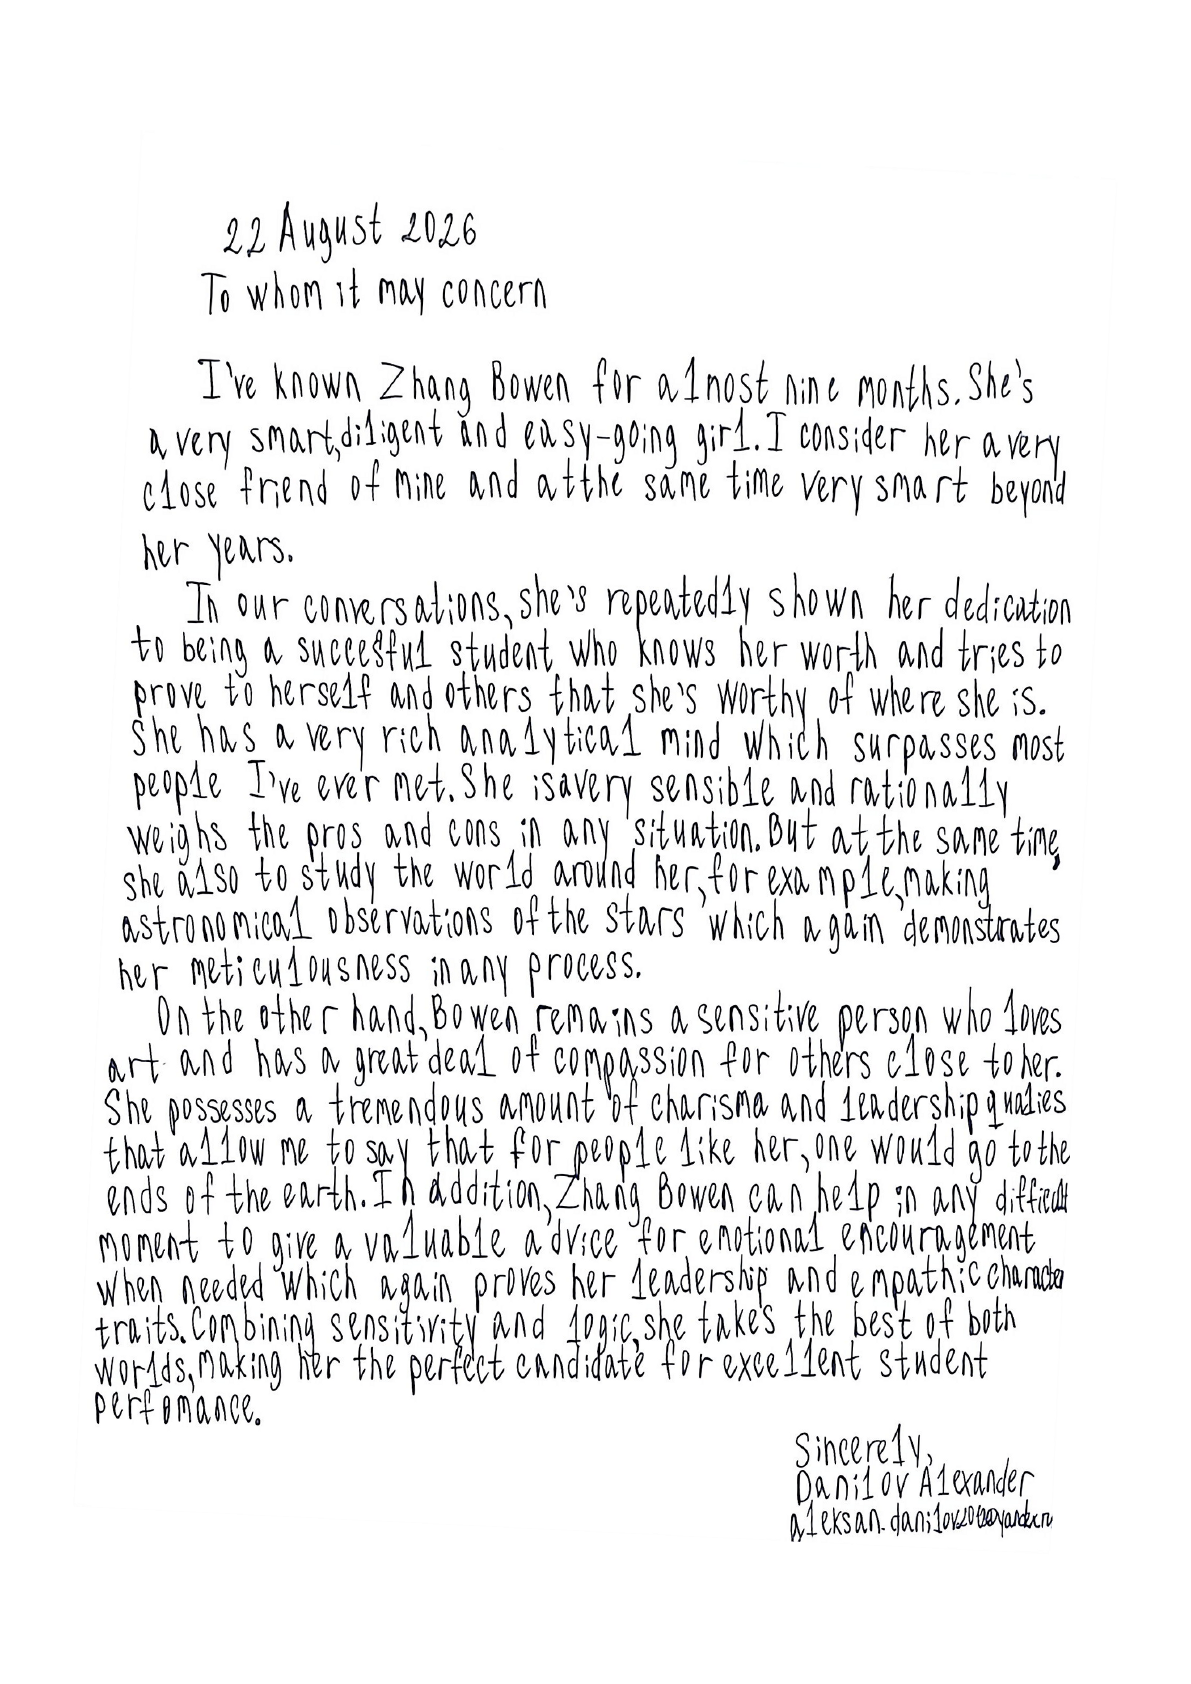 22 August 2026
To whom it may concern
I've known Zhang Bowen for almost nine months. She's
a very smart, diligent and easy-going girl. I consider her a very
close friend of mine and at the same time very smart beyond
her years.
In our conversations, she's repeatedly shown her dedication
to being a succesful student who knows her worth and tries to
prove to herself and others that she's worthy of where she is.
She has a very rich analytical mind which surpasses most
people I've ever met. She is a very sensible and rationally
weighs the pros and cons in any situation. But at the same time,
she also to study the world around her, for example, making
astronomical observations of the stars which again demonstrates
her meticulousness in any process.
On the other hand, Bowen remains a sensitive person who loves
art and has a great deal of compassion for others close to her.
She possesses a tremendous amount of charisma and leadership qualies
that allow me to say that for people like her, one would go to the
ends of the earth. In addition, Zhang Bowen can help in any difficult
moment to give a valuable advice for emotional encouragement
when needed which again proves her leadership and empathic character
traits. Combining sensitivity and logic, she takes the best of both
worlds, making her the perfect candidate for excellent student
perfomance.
Sincerely,
Danilov Alexander